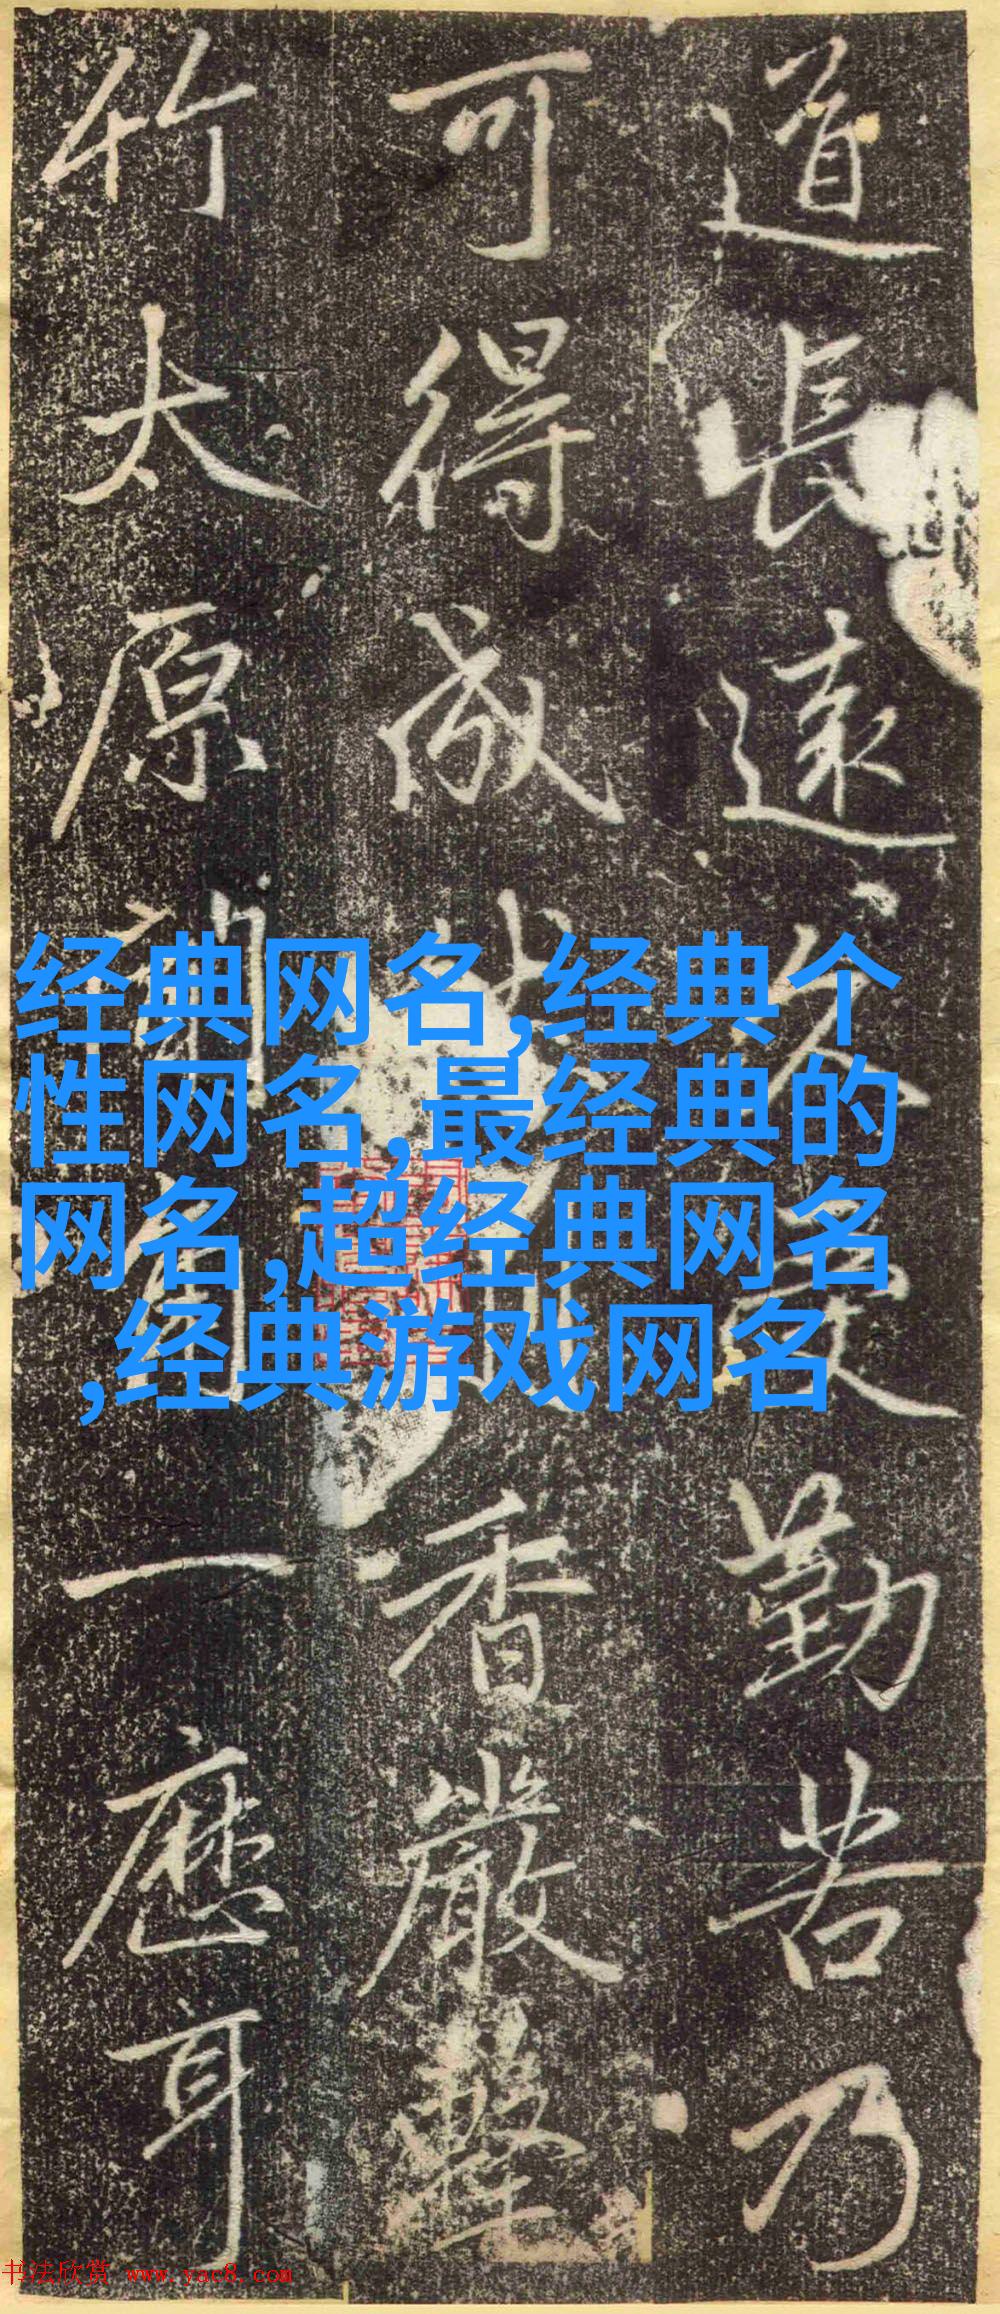 道長遠久受勤苦乃
可得成香嚴擊
竹太原聞角一應耳
经典网名,经典个
性网名,最经典的
网名,超经典网名
,经典游戏网名
书法欣赏 www.yac8.com